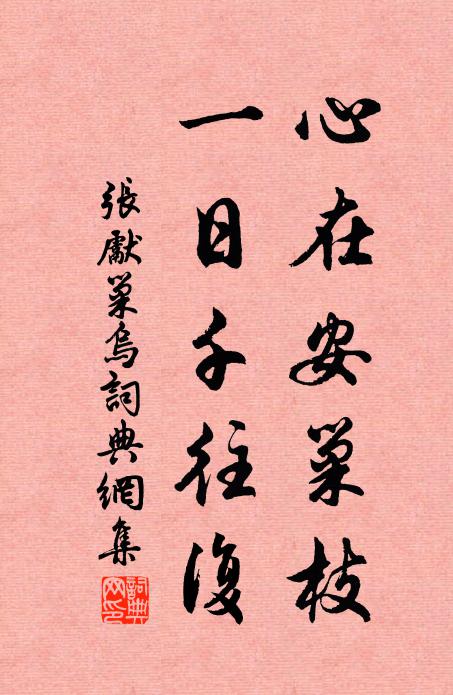 心在安巢枝
一日千往復
張獻巢烏詞典網集
詞典網印